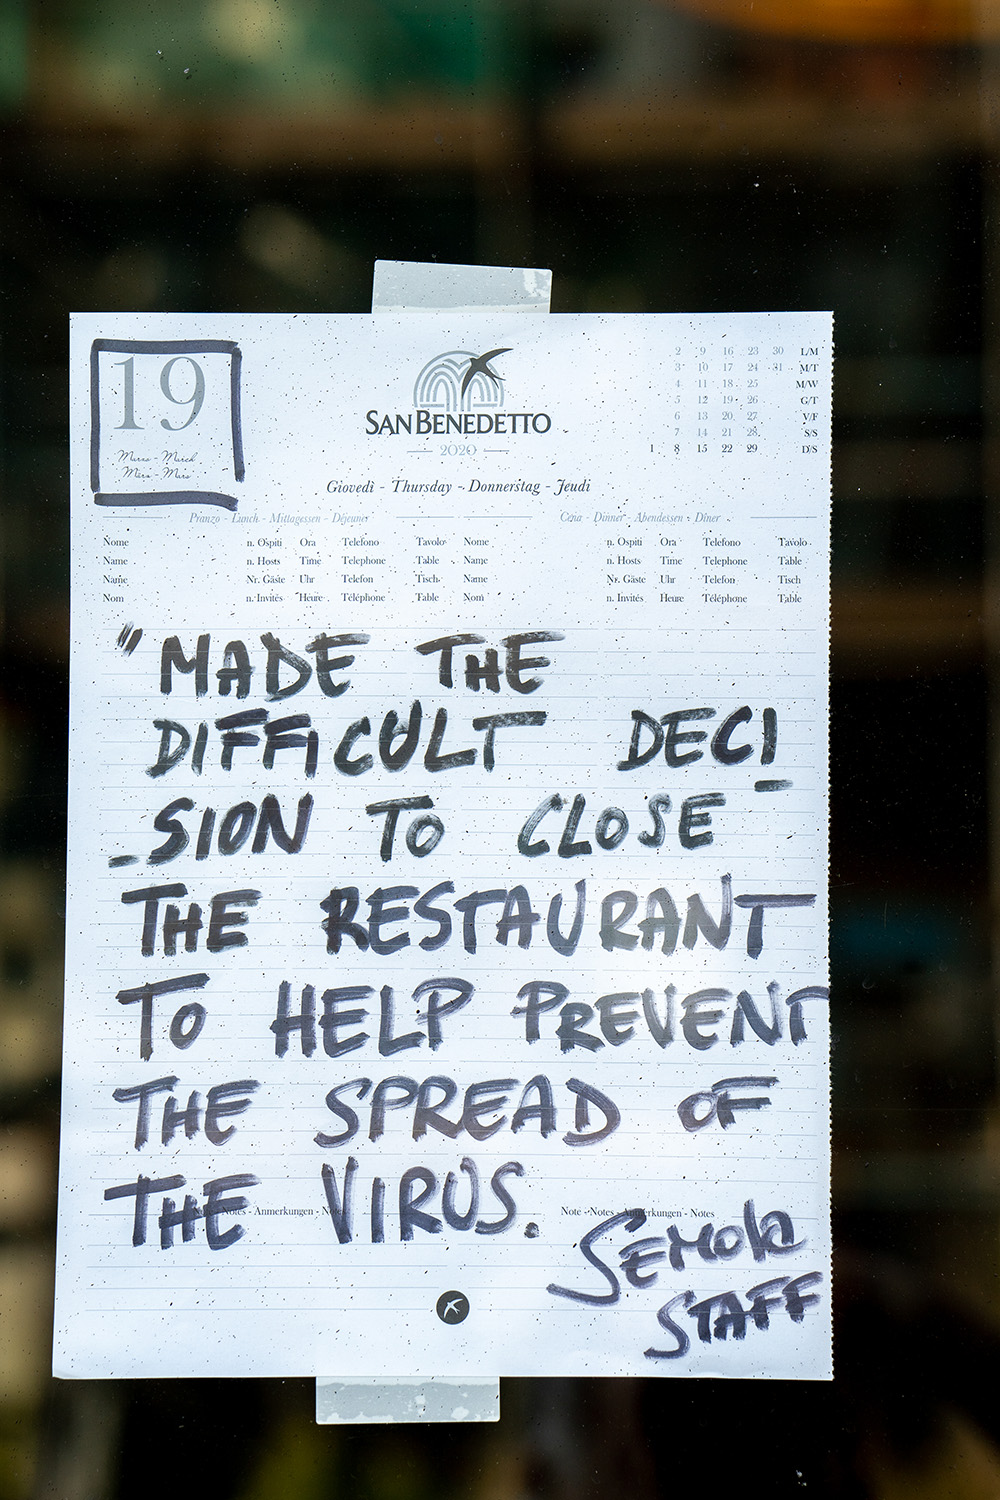 19
Marzo - March
März - Mars
SAN BENEDETTO
2020
2 9 16 23 30 L/M
3 10 17 24 31 M/T
4 11 18 25 M/W
5 12 19 26 G/T
6 13 20 27 V/F
7 14 21 28 S/S
1 8 15 22 29 D/S
Giovedì - Thursday - Donnerstag - Jeudi
Pranzo - Lunch - Mittagessen - Déjeuner
Cena - Dinner - Abendessen - Dîner
Nome n. Ospiti Ora Telefono Tavolo Nome n. Ospiti Ora Telefono Tavolo
Name n. Hosts Time Telephone Table Name n. Hosts Time Telephone Table
Name Nr. Gäste Uhr Telefon Tisch Name Nr. Gäste Uhr Telefon Tisch
Nom n. Invités Heure Téléphone Table Nom n. Invités Heure Téléphone Table
"MADE THE
DIFFICULT DECI_
_SION TO CLOSE
THE RESTAURANT
TO HELP PREVENT
THE SPREAD OF
THE VIRUS.
Notes - Anmerkungen
Note - Notes - Anmerkungen - Notes
SEMOLA
STAFF